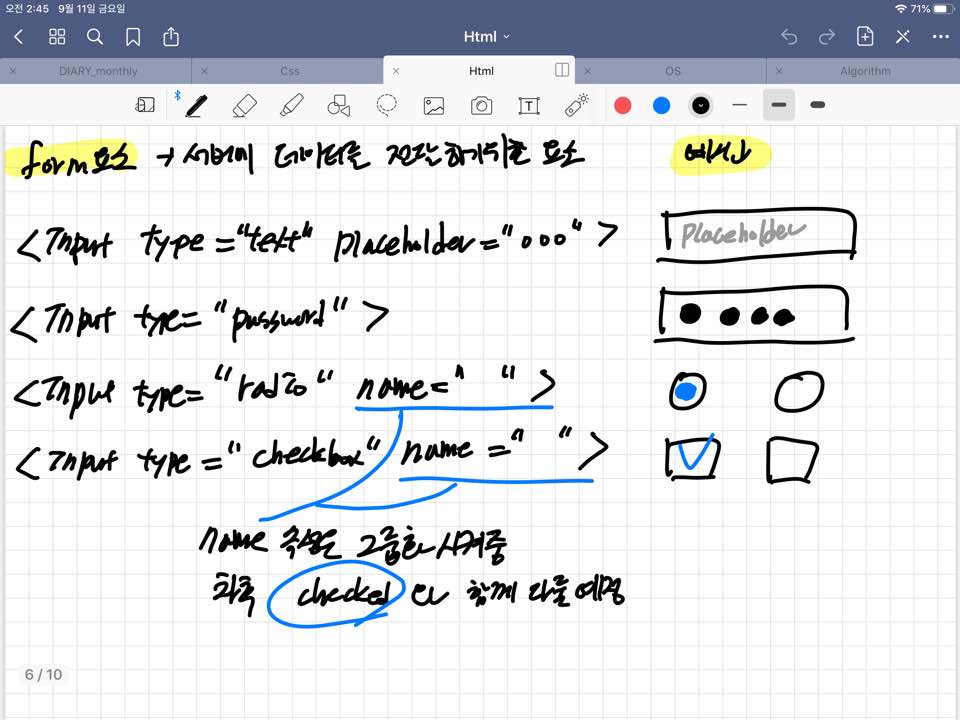 오전 2:45 9월 11일 금요일 71%
Html
DIARY_monthly Css Html OS Algorithm
form요소 → 서버에 데이터를 전달하기위한 요소 예시
<Input type="text" placeholder="ooo"> placeholder
<Input type="password">
<Input type="radio" name=" ">
<Input type="checkbox" name=" ">
name 속성은 그룹화 시켜줌
checked 와 함께 다룰예정
6 / 10